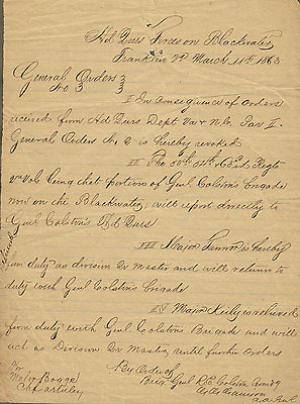 Hd Qurs Forces on Blackwater
Franklin Va March 11th 1863
General Orders
No 3
I In consequence of orders
received from Hd Qurs Dept Va & N.C. Par I.
General Orders No. 2 is hereby revoked
II The
Va Vols being that portion of Genl Colston's Brigade
now on the Blackwater, will report directly to
Genl Colston's Hd Qurs
III Major
duty as division Qr Master and will return to
duty with Genl Colston's Brigade
IV Major Keily is relieved
from duty with Genl Colston's Brigade and will
act as Division Qr Master, until further orders
By Order of
Brig Genl R E Colston Comdg
A.A. Genl
To
Major Boggs
Chf artillery